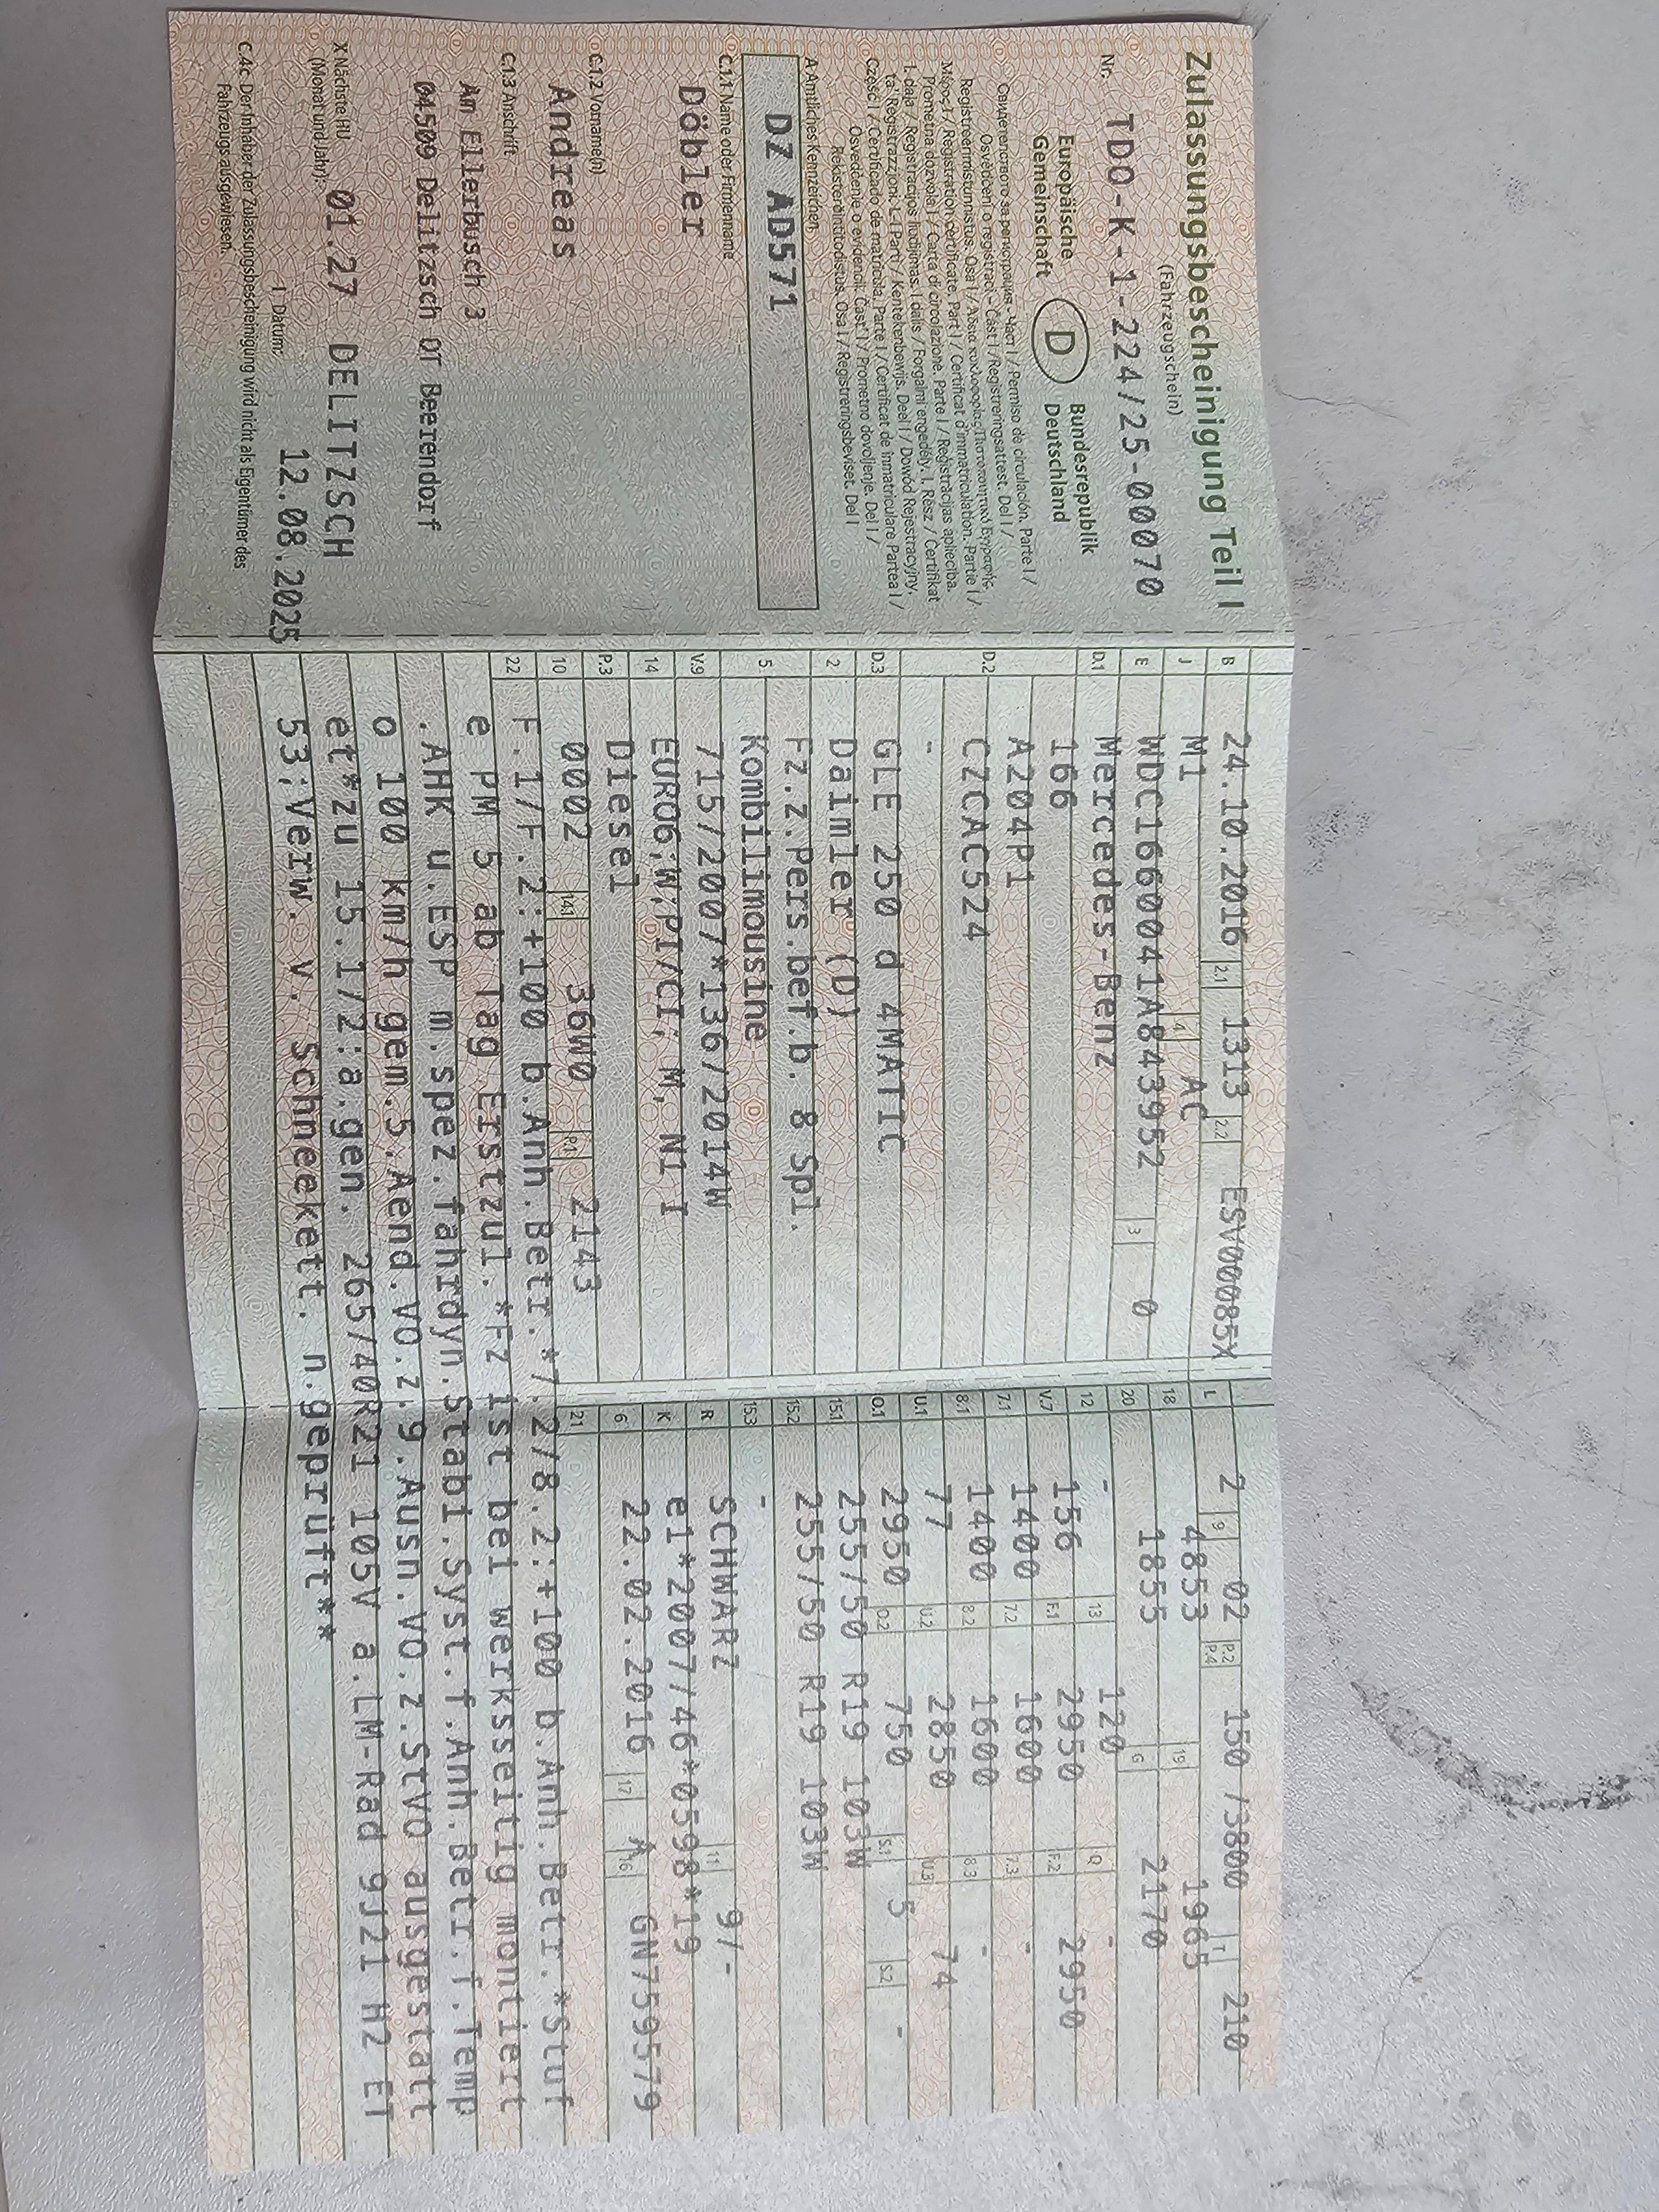 Zulassungsbescheinigung Teil I
(Fahrzeugschein)
Nr. TDO-K-1-224/25-00070
Europäische Gemeinschaft
D
Bundesrepublik Deutschland
Свидетелство за регистрация - Част I / Permiso de circulación. Parte I /
Osvědčení o registraci – Část I / Registreringsattest. Del I /
Registreerimistunnistus. Osa I / Άδεια κυκλοφορίας/Πιστοποιητικό Εγγραφής.
Μέρος I / Registration certificate. Part I / Certificat d'immatriculation. Partie I /
Prometna dozvola I / Carta di circolazione. Parte I / Reģistrācijas apliecība.
I. daļa / Registracijos liudijimas. I dalis / Forgalmi engedély. I. Rész / Ċertifikat
ta' Reġistrazzjoni. L-I Parti / Kentekenbewijs. Deel I / Dowód Rejestracyjny.
Część I / Certificado de matrícula. Parte I / Certificat de înmatriculare Partea I /
Osvedčenie o evidencii. Časť I / Prometno dovoljenje. Del I /
Rekisteröintitodistus. Osa I / Registreringsbeviset. Del I
A Amtliches Kennzeichen
DZ AD571
C.1.1 Name oder Firmenname
Döbler
C.1.2 Vorname(n)
Andreas
C.1.3 Anschrift
Am Ellerbusch 3
04509 Delitzsch OT Beerendorf
X Nächste HU
(Monat und Jahr): 01.27 DELITZSCH
I Datum: 12.08.2025
C.4c Der Inhaber der Zulassungsbescheinigung wird nicht als Eigentümer des
Fahrzeugs ausgewiesen.
B 24.10.2016 2.1 1313 2.2 ESV00085X
J M1 4 AC
E WDC1660041A843952 3 0
D.1 Mercedes-Benz
166
A204P1
D.2 CZCAC524
-
D.3 GLE 250 d 4MATIC
2 Daimler (D)
Fz.z.Pers.bef.b. 8 Spl.
5 Kombilimousine
V.9 715/2007*136/2014W
14 EURO6;W;PI/CI; M, N1 I
P.3 Diesel
10 0002 14.1 36W0 P.1 2143
L 2 9 02 P.2 P.4 150 /3800 T 210
18 4853 19 1965
20 1855 G 2170
12 - 13 120 Q -
V.7 156 F.1 2950 F.2 2950
7.1 1400 7.2 1600 7.3 -
8.1 1400 8.2 1600 8.3 -
U.1 77 U.2 2850 U.3 74
O.1 2950 O.2 750 S.1 5 S.2 -
15.1 255/50 R19 103W
15.2 255/50 R19 103W
15.3 -
R SCHWARZ 11 9/-
K e1*2007/46*0598*19
6 22.02.2016 17 A 16 GN7595579
21
22 F.1/F.2:+100 b.Anh.Betr.*7.2/8.2:+100 b.Anh.Betr.*Stuf
e PM 5 ab Tag Erstzul.*Fz ist bei werksseitig montiert
.AHK u.ESP m.spez.fahrdyn.Stabi.Syst.f.Anh.Betr.f.Temp
o 100 km/h gem.5.Aend.VO.z.9.Ausn.VO.z.StVO ausgestatt
et*zu 15.1/2:a.gen. 265/40R21 105V a.LM-Rad 9J21 H2 ET
53;Verw. v. Schneekett. n.geprüft**